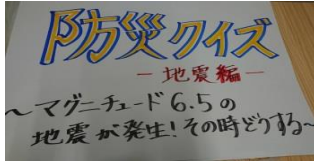 防災クイズ
－地震編－
～マグニチュード6.5の
地震が発生！その時どうする～